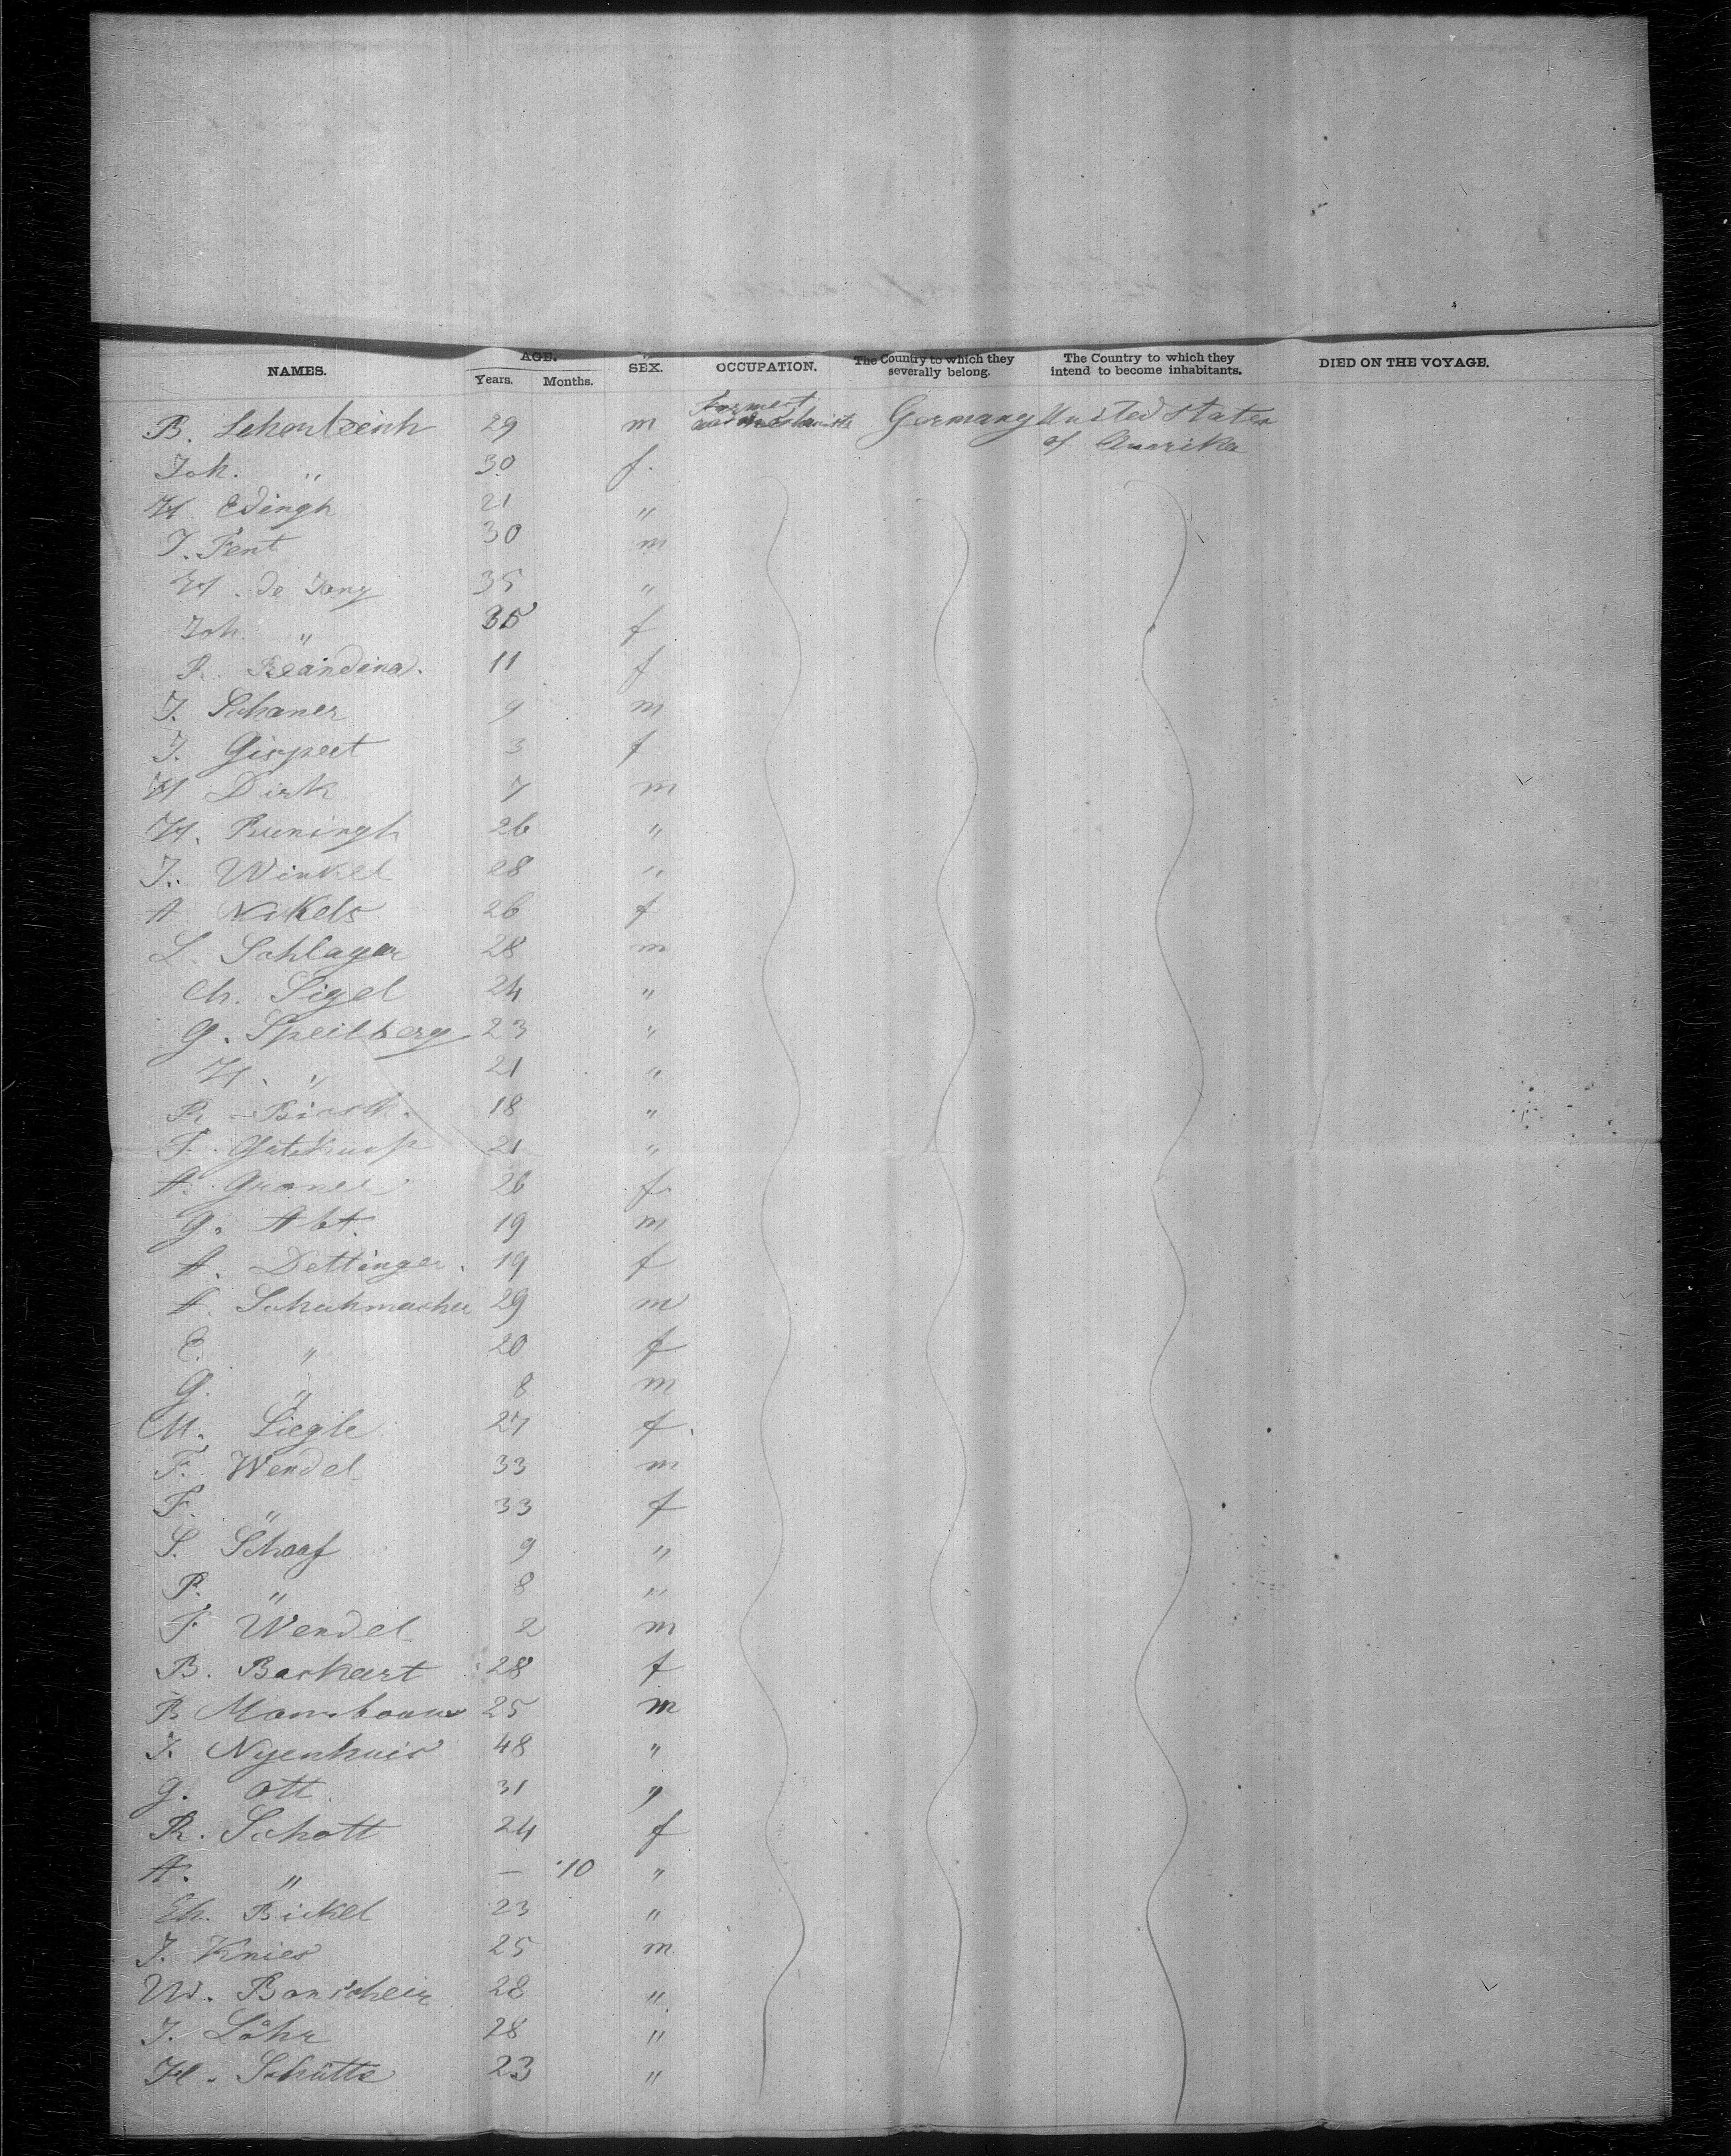 NAMES. AGE. SEX. OCCUPATION. The Country to which they severally belong. The Country to which they intend to become inhabitants. DIED ON THE VOYAGE.
Years. Months.
B. 29 m Farmers and mechanists Germany United States
of Amerika
Joh. " 30 f.
H Edingh 21 "
J. Fent 30 m
H. de Jong 35 "
Joh. " 35 f
R. 11 f
J. Schaner 9 m
J. 3 f
H Dirk 7 m
H. Buningh 26 "
J. Winkel 28 "
A. Nikels 26 f
L. Schlager 28 m
Ch. Sigel 24 "
G. Speilberg 23 "
H. " 21 "
R. 18 "
F. 21 "
A. Graner 26 f
G. Abt. 19 m
A. Dettinger. 19 f
A. Schuhmacher 29 m
C. " 20 f
G. " 8 m
M. Siegle 27 f.
F. Wendel 33 m
F. " 33 f
S. Schaaf 9 "
P. " 8 "
F Wendel 2 m
B. 28 f
B 25 m
J. Nyenhuis 48 "
G. Ott. 31 "
R. Schott 24 f
A. " — 10 "
Ch. Bickel 23 "
J. Knies 25 m
W. Bonscheir 28 "
J. Löhr 28 "
H. Schütte 23 "